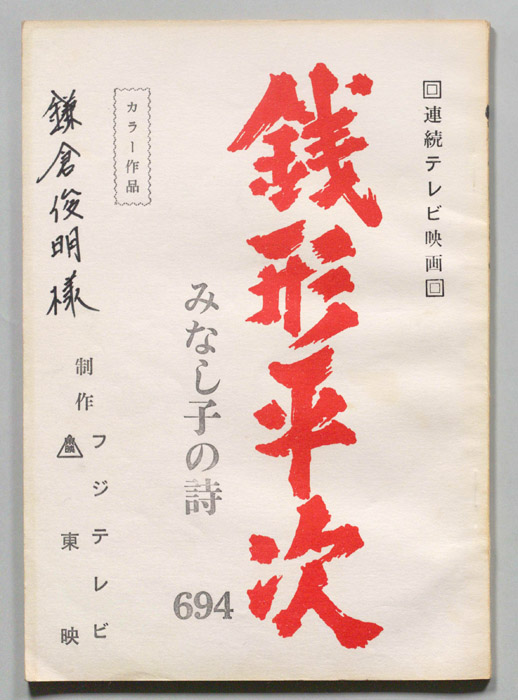 回連続テレビ映画回
銭形平次
みなし子の詩
694
カラー作品
鎌倉俊明様
制作
フジテレビ
東映